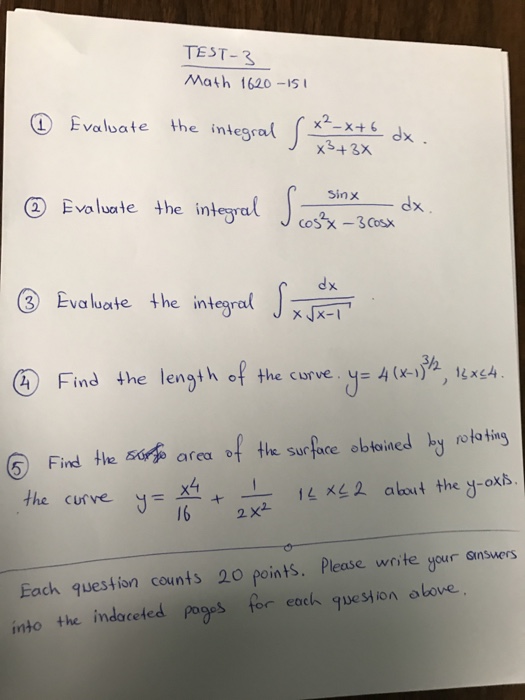 TEST-3
Math 1620-151
① Evaluate the integral ∫ (x²-x+6)/(x³+3x) dx.
② Evaluate the integral ∫ sinx/(cos²x-3cosx) dx.
③ Evaluate the integral ∫ dx/(x√(x-1))
④ Find the length of the curve. y=4(x-1)^(3/2), 1≤x≤4.
⑤ Find the area of the surface obtained by rotating
the curve y = x⁴/16 + 1/(2x²) 1≤x≤2 about the y-axis.
Each question counts 20 points. Please write your answers
into the indaceted pages for each question above.